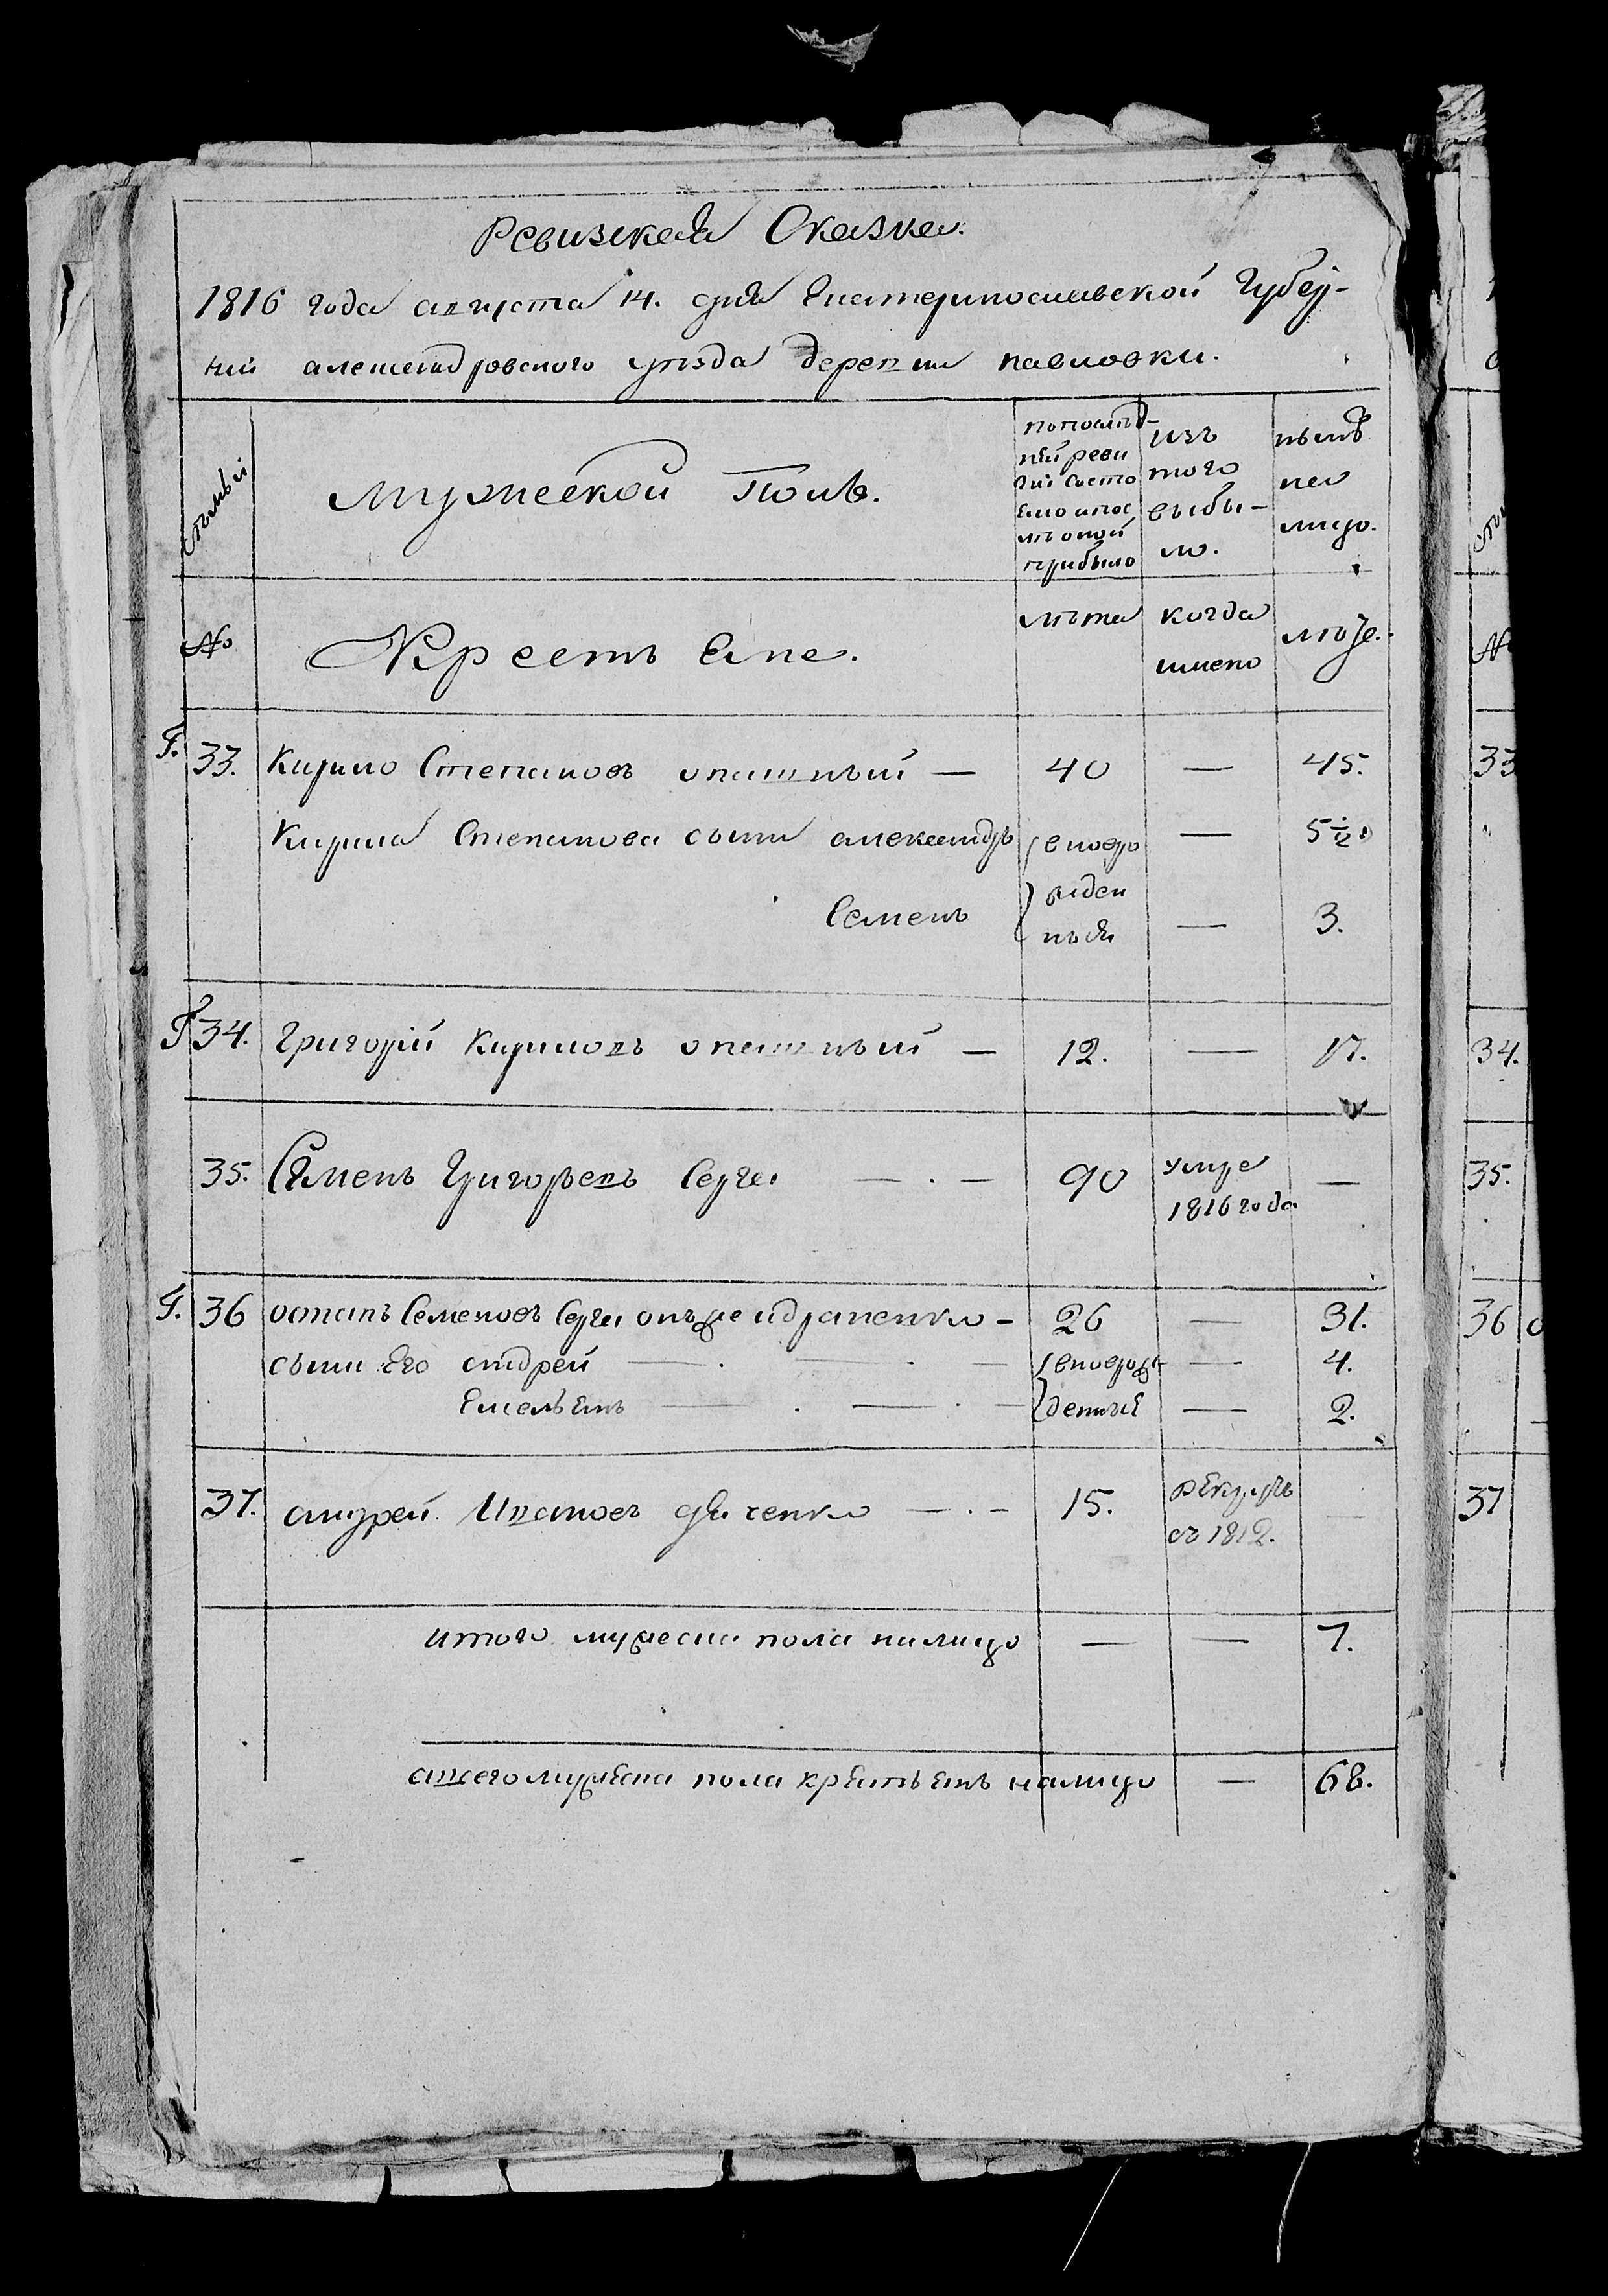 Ревизская Сказка.
1816 года августа 14. дня Екатеринославской Губер-
нии александровского уезда деревни павловки.
семьи
мужеской Полъ.
по послед-
ней реви
зии состо
яло и пос
лъ оной
прибыло
изъ
того
выбы-
ло.
нынѣ
на
лицо.
№
Крестьяне.
лѣта
когда
имено
лѣта.
Г. 33. Кирило Степановъ опашный — 40 — 45.
Кирила Степанова сыни александръ вновѣро — 5 1/2
Семенъ жден ныя — 3.
Г 34. Григорій Кириловъ опашный — 12. — 17.
35. Семенъ Григорьевъ Серга — . — 90 умре —
1816 года
Г. 36 остапъ Семеновъ Серга онъже 26 — 31.
сыни Его андрей — . — . — вноворож — 4.
Емельянъ — . — . — денныЕ — 2.
37. андрей Ивановъ дяченко — . — 15. рЕкрутъ —
съ 1812.
итого мужеска пола налицо — — 7.
авсего мужЕска пола крЕстьЕнъ налицо — 68.
33
34.
35.
36 о
37